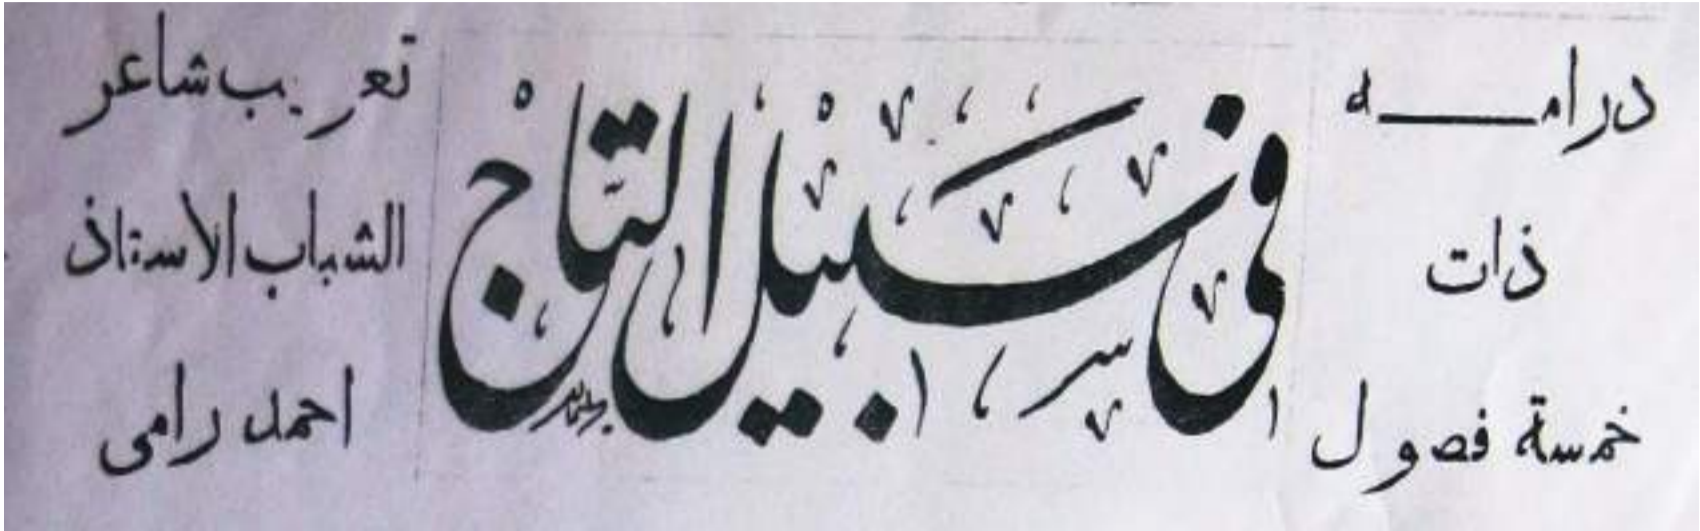 درامه
ذات
خمسة فصول
في سبيل التاج
تعريب شاعر
الشباب الاستاذ
احمد رامى